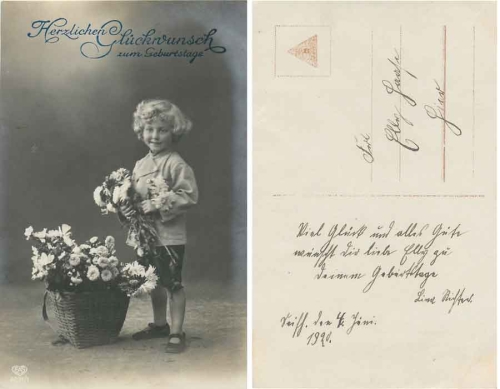 Herzlichen Glückwunsch
zum Geburtstage
Für
Elly
Hier
Viel Glück und alles Gute
wünscht Dir liebe Elly zu
Deinem Geburtstage
Lina Richter.
den 4. Juni.
1920.